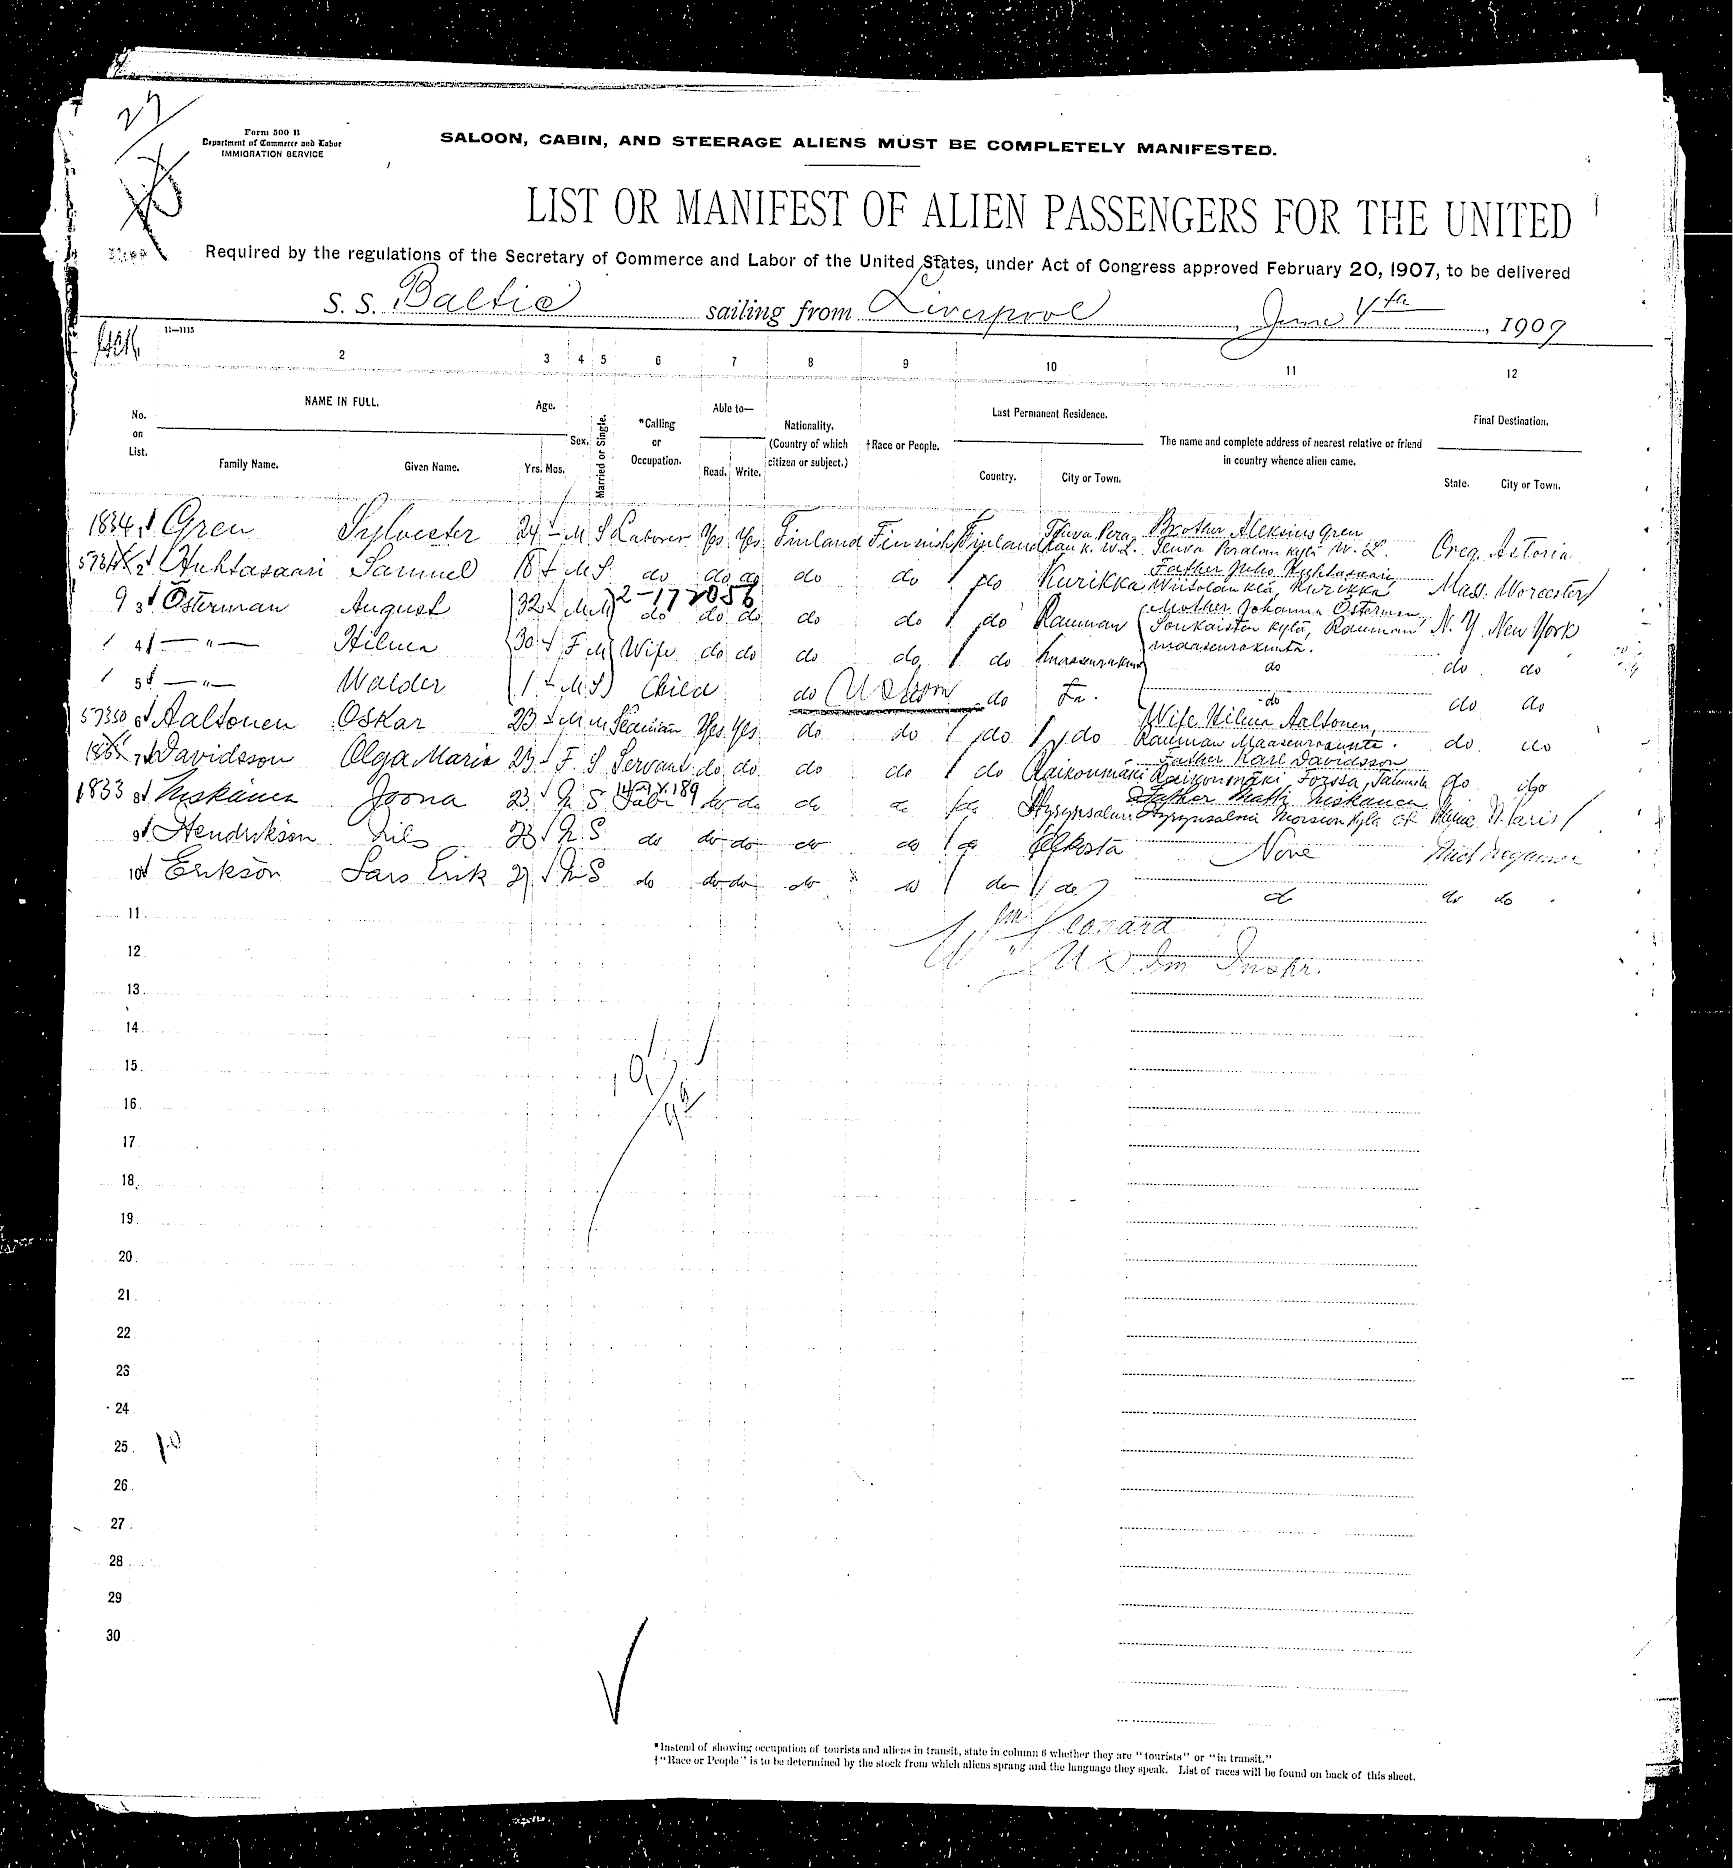 27
Form 500 B
Department of Commerce and Labor
IMMIGRATION SERVICE
SALOON, CABIN, AND STEERAGE ALIENS MUST BE COMPLETELY MANIFESTED.
LIST OR MANIFEST OF ALIEN PASSENGERS FOR THE UNITED
Required by the regulations of the Secretary of Commerce and Labor of the United States, under Act of Congress approved February 20, 1907, to be delivered
S. S. Baltic sailing from Liverpool, June 4th, 1909
11—1115
2 3 4 5 6 7 8 9 10 11 12
No. on List. NAME IN FULL. Family Name. Given Name. Age. Yrs. Mos. Sex. Married or Single. *Calling or Occupation. Able to— Read. Write. Nationality. (Country of which citizen or subject.) †Race or People. Last Permanent Residence. Country. City or Town. The name and complete address of nearest relative or friend in country whence alien came. Final Destination. State. City or Town.
1834 1 Gren Sylvester 24 M S Laborer Yes Yes Finland Finnish Finland Brother Aleksius Gren Oreg. Astoria
2 Huhtasaari Samuel 18 M S do do do do do do Kurikka Father Juho Huhtasaari Kurikka Mass. Worcester
2-172056
9 3 Österman August 32 M M do do do do do do Rauman Mother Johanna Österman, Soukaisten kylä, Rauman maaseurakunta. N. Y. New York
1 4 — " — Hilma 30 F M Wife do do do do do maaseurakunta do do do
1 5 — " — Walder 1 M S Child do do do do do
57350 6 Aaltonen Oskar 23 M M Seaman Yes Yes do do do do Wife Hilma Aaltonen, Rauman Maaseurakunta. do do
7 Davidsson Olga Maria 23 F. S Servant do do do do do Raikonmäki Father Karl Davidsson Raikonmäki Forssa, do do
1833 8 Niskanen Joona 23 M S Labr do do do do do Hyrynsalmi Father Matti Niskanen Hyrynsalmi
9 Hendrikson Nils 23 M S do do do do do do None Mich Negaunee
10 Erikson Lars Erik 21 M S do do do do do do do do do do
Wm Leonard
U S Im Inspr.
11
12
13
14
15
16
17
18
19
20
21
22
23
24
25
26
27
28
29
30
*Instead of showing occupation of tourists and aliens in transit, state in column 6 whether they are "tourists" or "in transit."
†"Race or People" is to be determined by the stock from which aliens sprang and the language they speak. List of races will be found on back of this sheet.